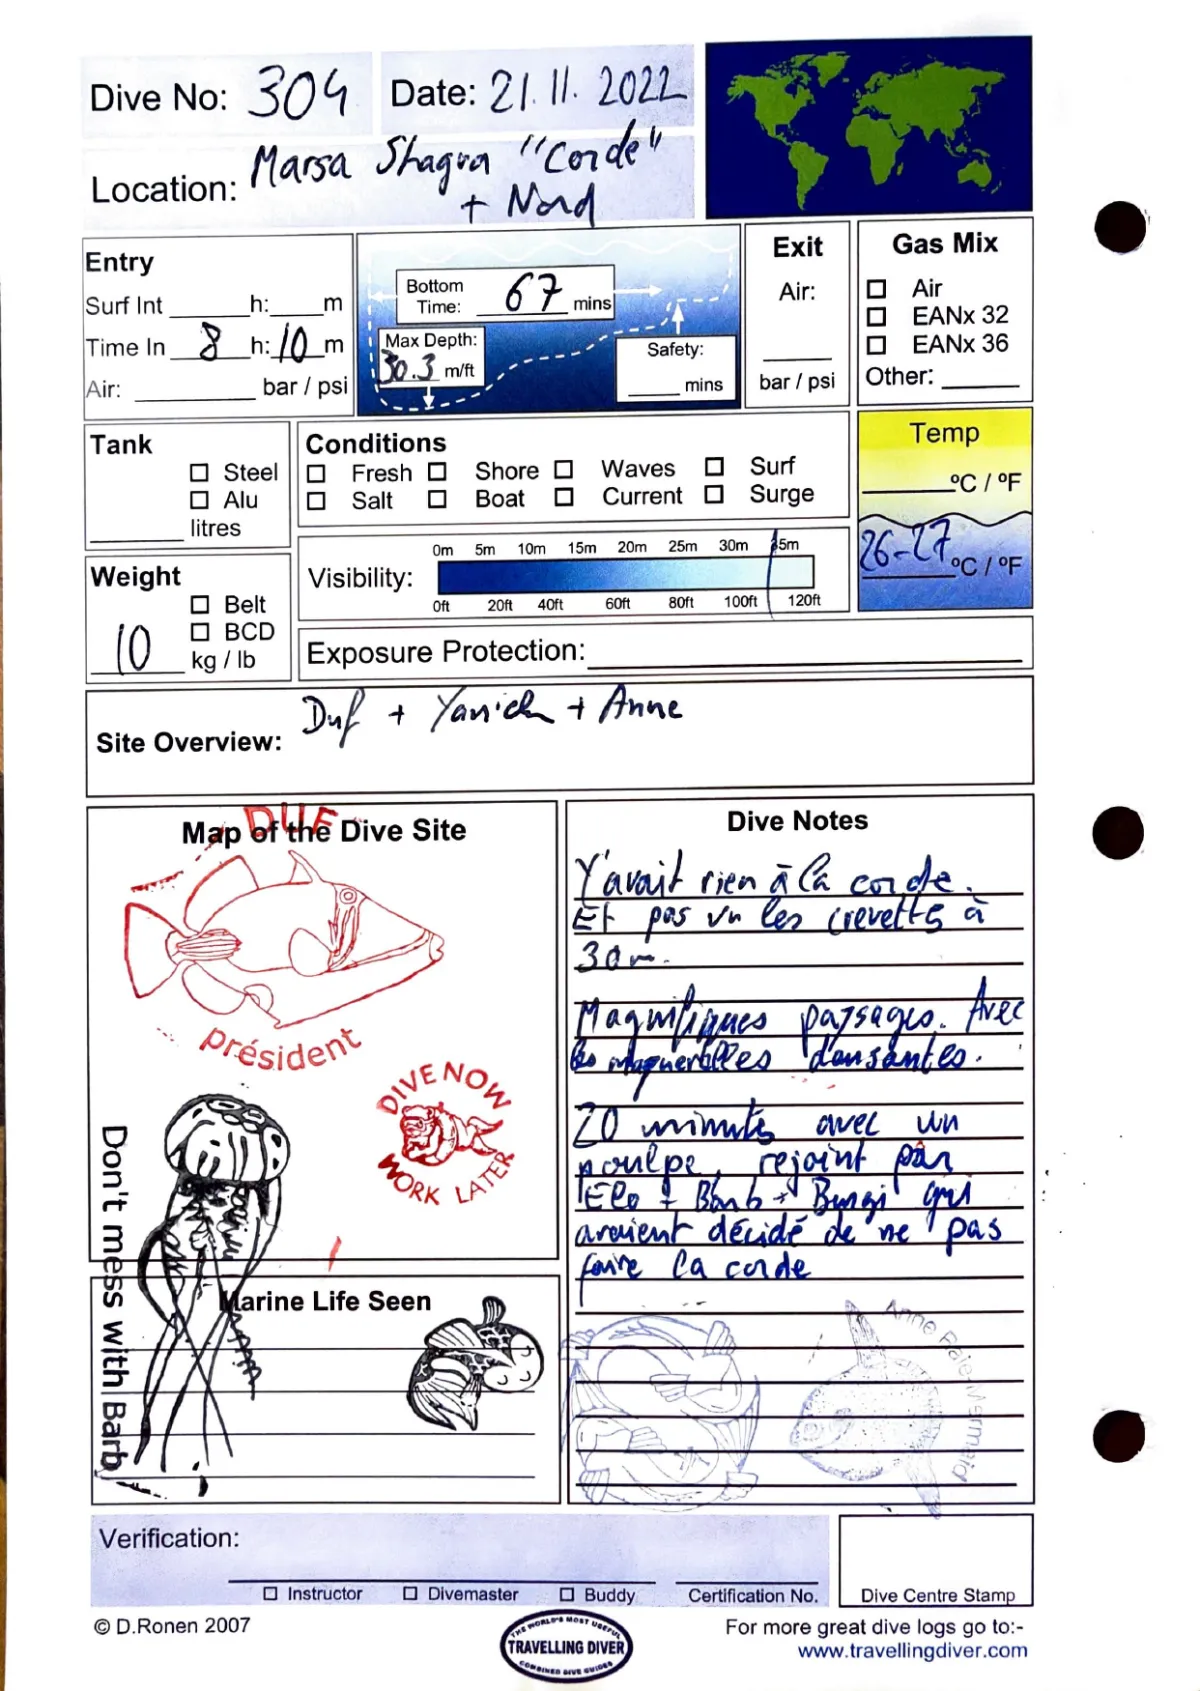 Dive No: 304 Date: 21.11.2022
Location: Marsa Shagra "Corde"
+ Nord
Entry
Surf Int ____h:____m
Time In 8 h: 10 m
Air: ____ bar / psi
Bottom
Time: 67 mins
Max Depth:
30.3 m/ft
Safety:
____ mins
Exit
Air:
____
bar / psi
Gas Mix
☐ Air
☐ EANx 32
☐ EANx 36
Other: ____
Tank
☐ Steel
☐ Alu
____ litres
Conditions
☐ Fresh ☐ Shore ☐ Waves ☐ Surf
☐ Salt ☐ Boat ☐ Current ☐ Surge
Temp
____ °C / °F
26-27 °C / °F
Weight
☐ Belt
☐ BCD
10 kg / lb
0m 5m 10m 15m 20m 25m 30m 35m
Visibility:
0ft 20ft 40ft 60ft 80ft 100ft 120ft
Exposure Protection: ____
Site Overview: Duf + Yanick + Anne
Map of the Dive Site
DUF
président
DIVE NOW
WORK LATER
Don't mess with Barb
Marine Life Seen
Dive Notes
Y'avait rien à la corde.
Et pas vu les crevettes à
30m.
Magnifiques paysages. Avec
les maquerelles dansantes.
20 minutes avec un
poulpe, rejoint par
Elo + Barb + Bungi qui
avaient décidé de ne pas
faire la corde
Anne Raie-Mermaid
Verification:
☐ Instructor ☐ Divemaster ☐ Buddy Certification No.
Dive Centre Stamp
© D.Ronen 2007
THE WORLD'S MOST USEFUL
TRAVELLING DIVER
COMBINED DIVE GUIDES
For more great dive logs go to:-
www.travellingdiver.com